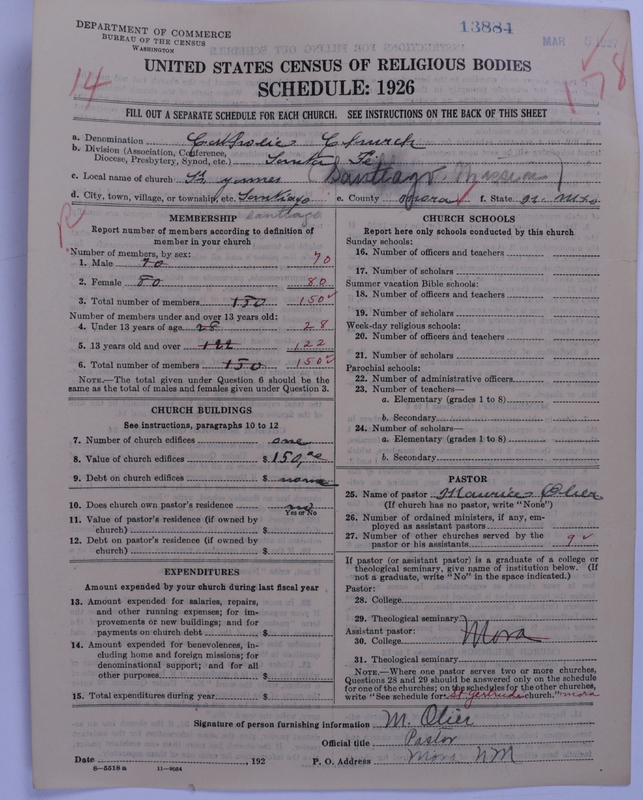 DEPARTMENT OF COMMERCE
BUREAU OF THE CENSUS
WASHINGTON
13884
MAR
UNITED STATES CENSUS OF RELIGIOUS BODIES
SCHEDULE: 1926
14
178
FILL OUT A SEPARATE SCHEDULE FOR EACH CHURCH. SEE INSTRUCTIONS ON THE BACK OF THIS SHEET
a. Denomination Catholic Church
b. Division (Association, Conference, Diocese, Presbytery, Synod, etc.) Santa Fe
c. Local name of church St. James (Santiago Mission)
d. City, town, village, or township, etc. Santiago e. County Mora f. State N. Mex
Santiago
MEMBERSHIP
Report number of members according to definition of
member in your church
Number of members, by sex:
1. Male 70 70
2. Female 80 80
3. Total number of members 150 150
Number of members under and over 13 years old:
4. Under 13 years of age 28 28
5. 13 years old and over 122 122
6. Total number of members 150 150
NOTE.—The total given under Question 6 should be
same as the total of males and females given under Question 3.
CHURCH BUILDINGS
See instructions, paragraphs 10 to 12
7. Number of church edifices one
8. Value of church edifices $ 150,00
9. Debt on church edifices $ none
10. Does church own pastor's residence no
Yes or No
11. Value of pastor's residence (if owned by
church) $
12. Debt on pastor's residence (if owned by
church) $
EXPENDITURES
Amount expended by your church during last fiscal year
13. Amount expended for salaries, repairs,
and other running expenses; for im-
provements or new buildings; and for
payments on church debt $
14. Amount expended for benevolences, in-
cluding home and foreign missions; for
denominational support; and for all
other purposes $
15. Total expenditures during year $
CHURCH SCHOOLS
Report here only schools conducted by this church
Sunday schools:
16. Number of officers and teachers
17. Number of scholars
Summer vacation Bible schools:
18. Number of officers and teachers
19. Number of scholars
Week-day religious schools:
20. Number of officers and teachers
21. Number of scholars
Parochial schools:
22. Number of administrative officers
23. Number of teachers—
a. Elementary (grades 1 to 8)
b. Secondary
24. Number of scholars—
a. Elementary (grades 1 to 8)
b. Secondary
PASTOR
25. Name of pastor Maurice Olier
(If church has no pastor, write "None")
26. Number of ordained ministers, if any, em-
ployed as assistant pastors
27. Number of other churches served by the
pastor or his assistants 9
If pastor (or assistant pastor) is a graduate of a college or
theological seminary, give name of institution below. (If
not a graduate, write "No" in the space indicated.)
Pastor:
28. College
29. Theological seminary
Assistant pastor:
30. College Mora
31. Theological seminary
NOTE.—Where one pastor serves two or more churches,
Questions 28 and 29 should be answered only on the schedule
for one of the churches; on the schedules for the other churches,
write "See schedule for St Gertrude church." Mora
Signature of person furnishing information M. Olier
Official title Pastor
Date , 192 P. O. Address Mora NM
8—5518a 11—9054